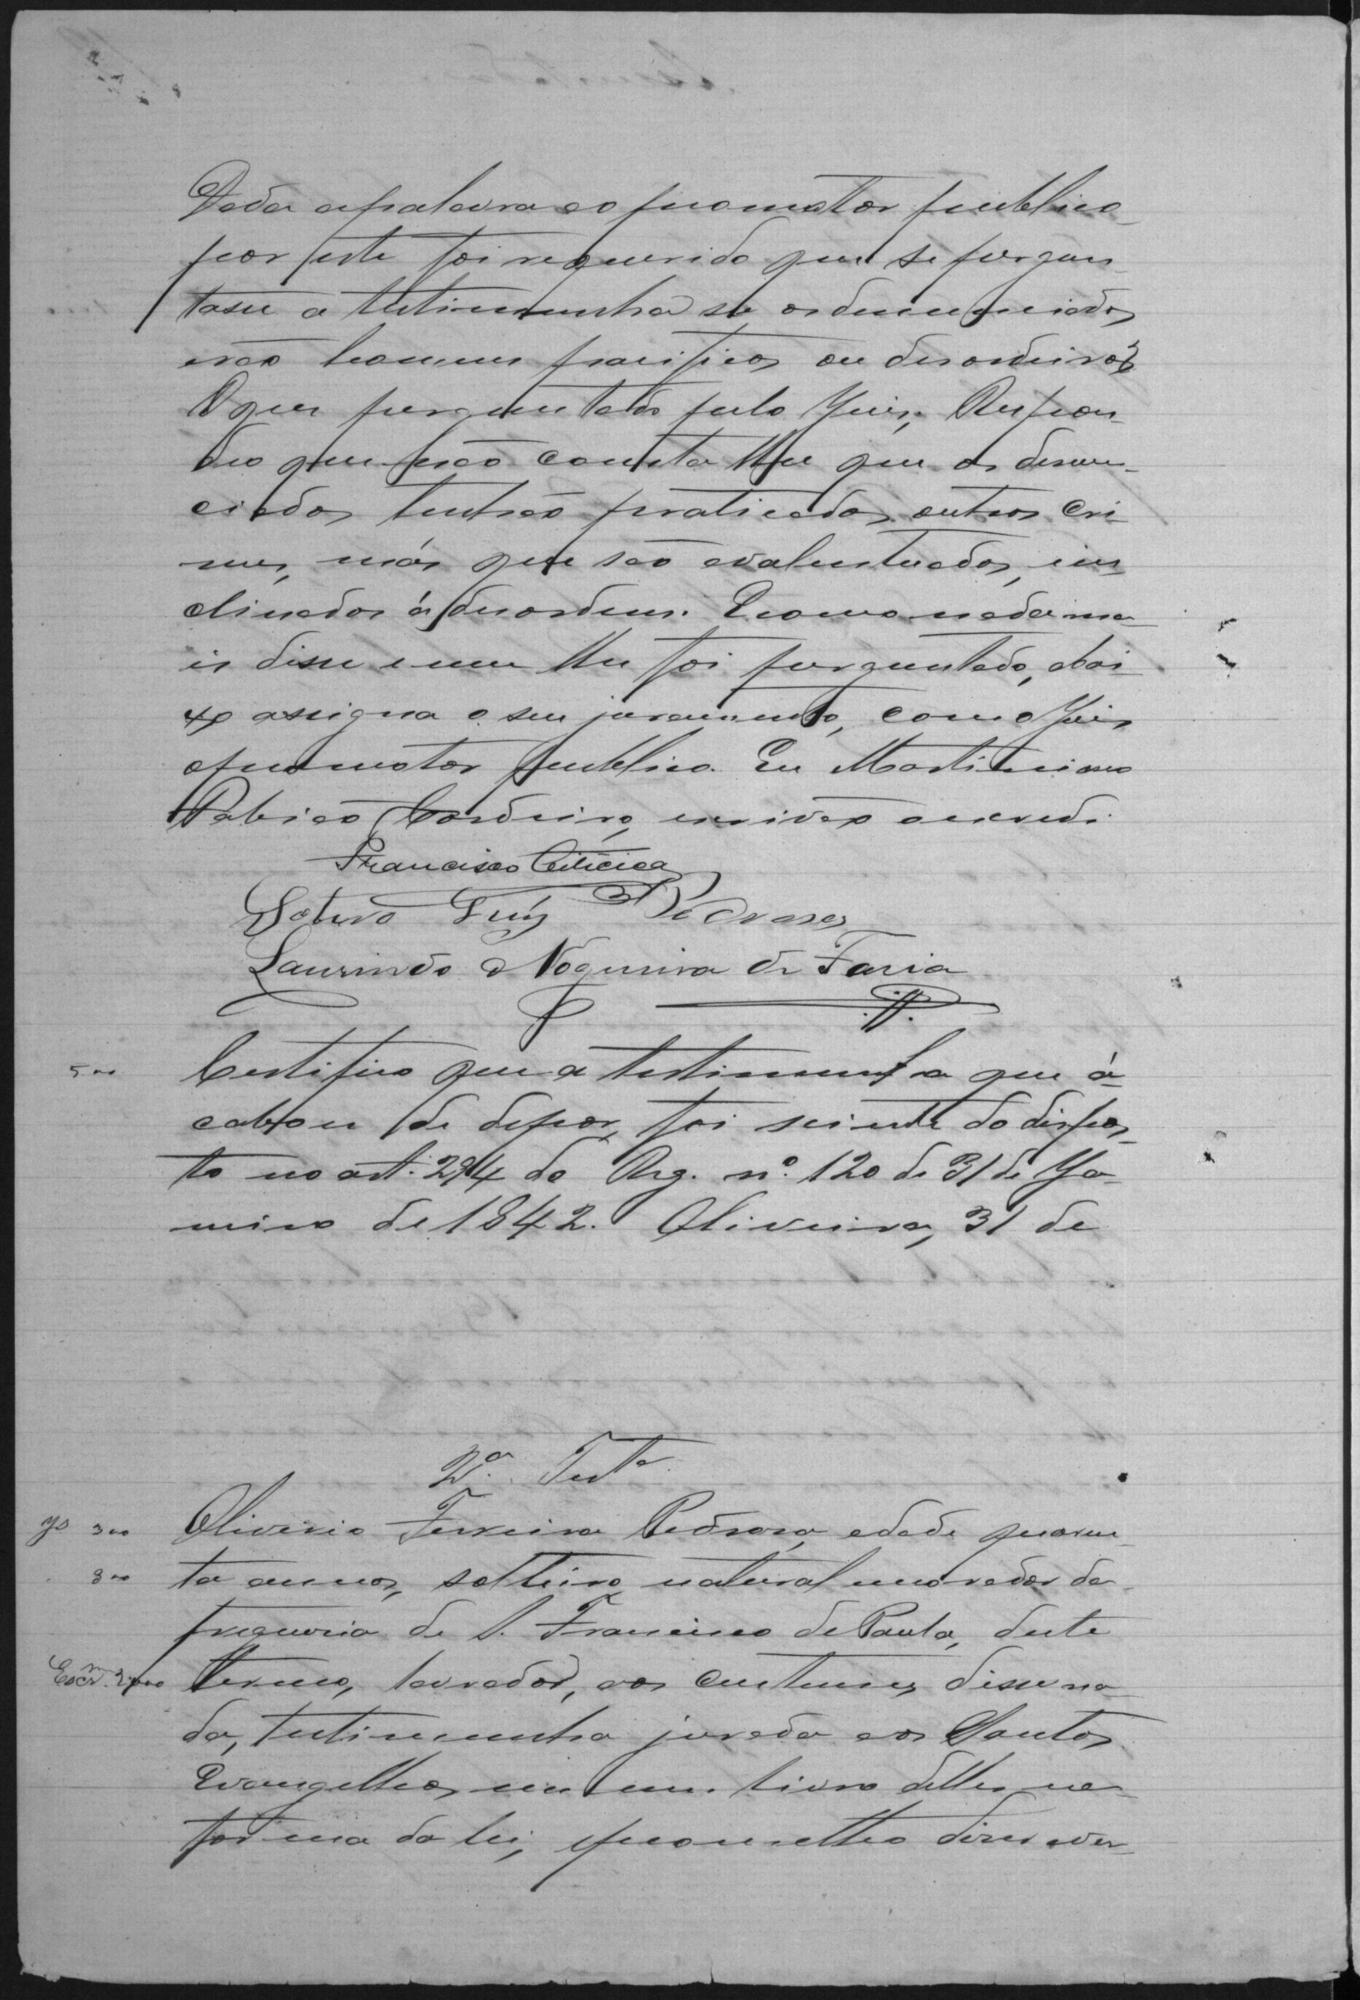 Dada a palavra ao promotor publico
por este foi requerido que se pergun-
tasse a testimunha se os denunciados
erão homens pacificos ou desordeiros
O que perguntado pelo Juiz, Respon-
deo que não consta lhe que os denun-
ciados tenhão praticado outros cri-
mes, más que são avalentuados, in-
clinados á desordem. E como nada ma-
is disse e nem lhe foi perguntado, abai-
xo assigna o seu juramento, com o Juiz
e promotor publico. Eu Martiniano
Cordeiro, escrivão o escrevi.
Francisco
Sotero Luiz Pedrosa
Laurindo Nogueira de Faria
500 Certifico que a testimunha que á
cabou de depor, foi sciente do dispos-
to no art. 294 do Reg. nº. 120 de 31 de Ja-
neiro de 1842. Oliveira, 31 de
2ª. Testª.
300 Oliverio Ferreira Pedrosa, edade quaren-
300 ta annos, solteiro, natural e morador da
freguesia de S. Francisco de Paula, deste
Escr.m termo, lavrador, aos custumes disse na-
da, testimunha jurada aos Santos
Evangelhos em um livro delles na
forma da lei, prometteo dizer a ver-